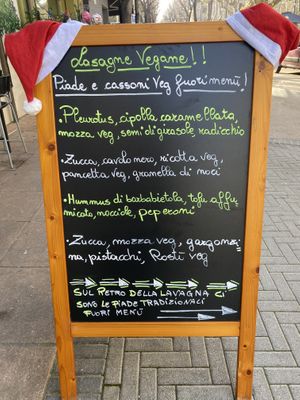 Lasagne Vegane!!
Piade e cassoni Veg fuori menù!
• Pleurotus, cipolla caramellata,
mozza veg, semi di girasole, radicchio
• Zucca, cavolo nero, ricotta veg,
pancetta veg, granella di noci
• Hummus di barbabietola, tofu affu
micato, nocciole, peperoni
• Zucca, mozza veg, gorgonzo
na, pistacchi, Rosti veg
SUL RETRO DELLA LAVAGNA CI
SONO LE PIADE TRADIZIONALI
FUORI MENÙ